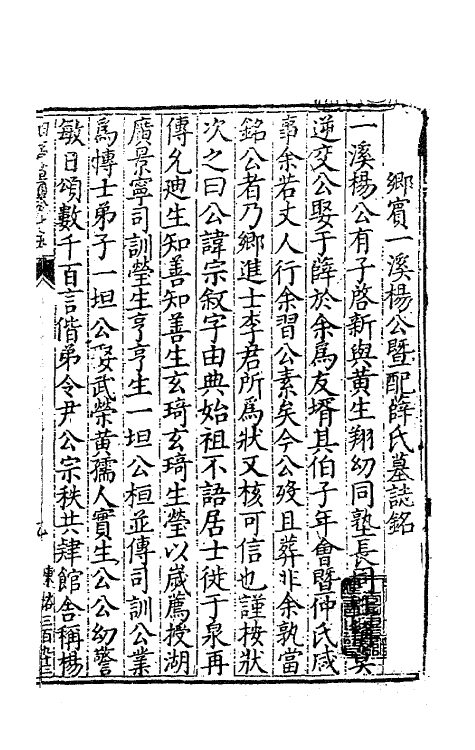 鄉賓一溪楊公暨配薛氏墓誌銘
一溪楊公有子啓新與黃生翔幼同塾長同
逆交公娶于薛於余爲友壻其伯子年會暨仲氏咸
事余若丈人行余習公素矣今公歿且葬非余孰當
銘公者乃鄉進士李君所爲狀又核可信也謹按狀
次之曰公諱宗敘字由典始祖不語居士徙于泉再
傳允迪生知善知善生玄琦玄琦生瑩以歲薦授湖
廣景寧司訓瑩生亨亨生一坦公桓並傳司訓公業
爲博士弟子一坦公娶武榮黃孺人實生公公幼警
敏日頌數千百言偕弟令尹公宗秩共肄館舍稱楊